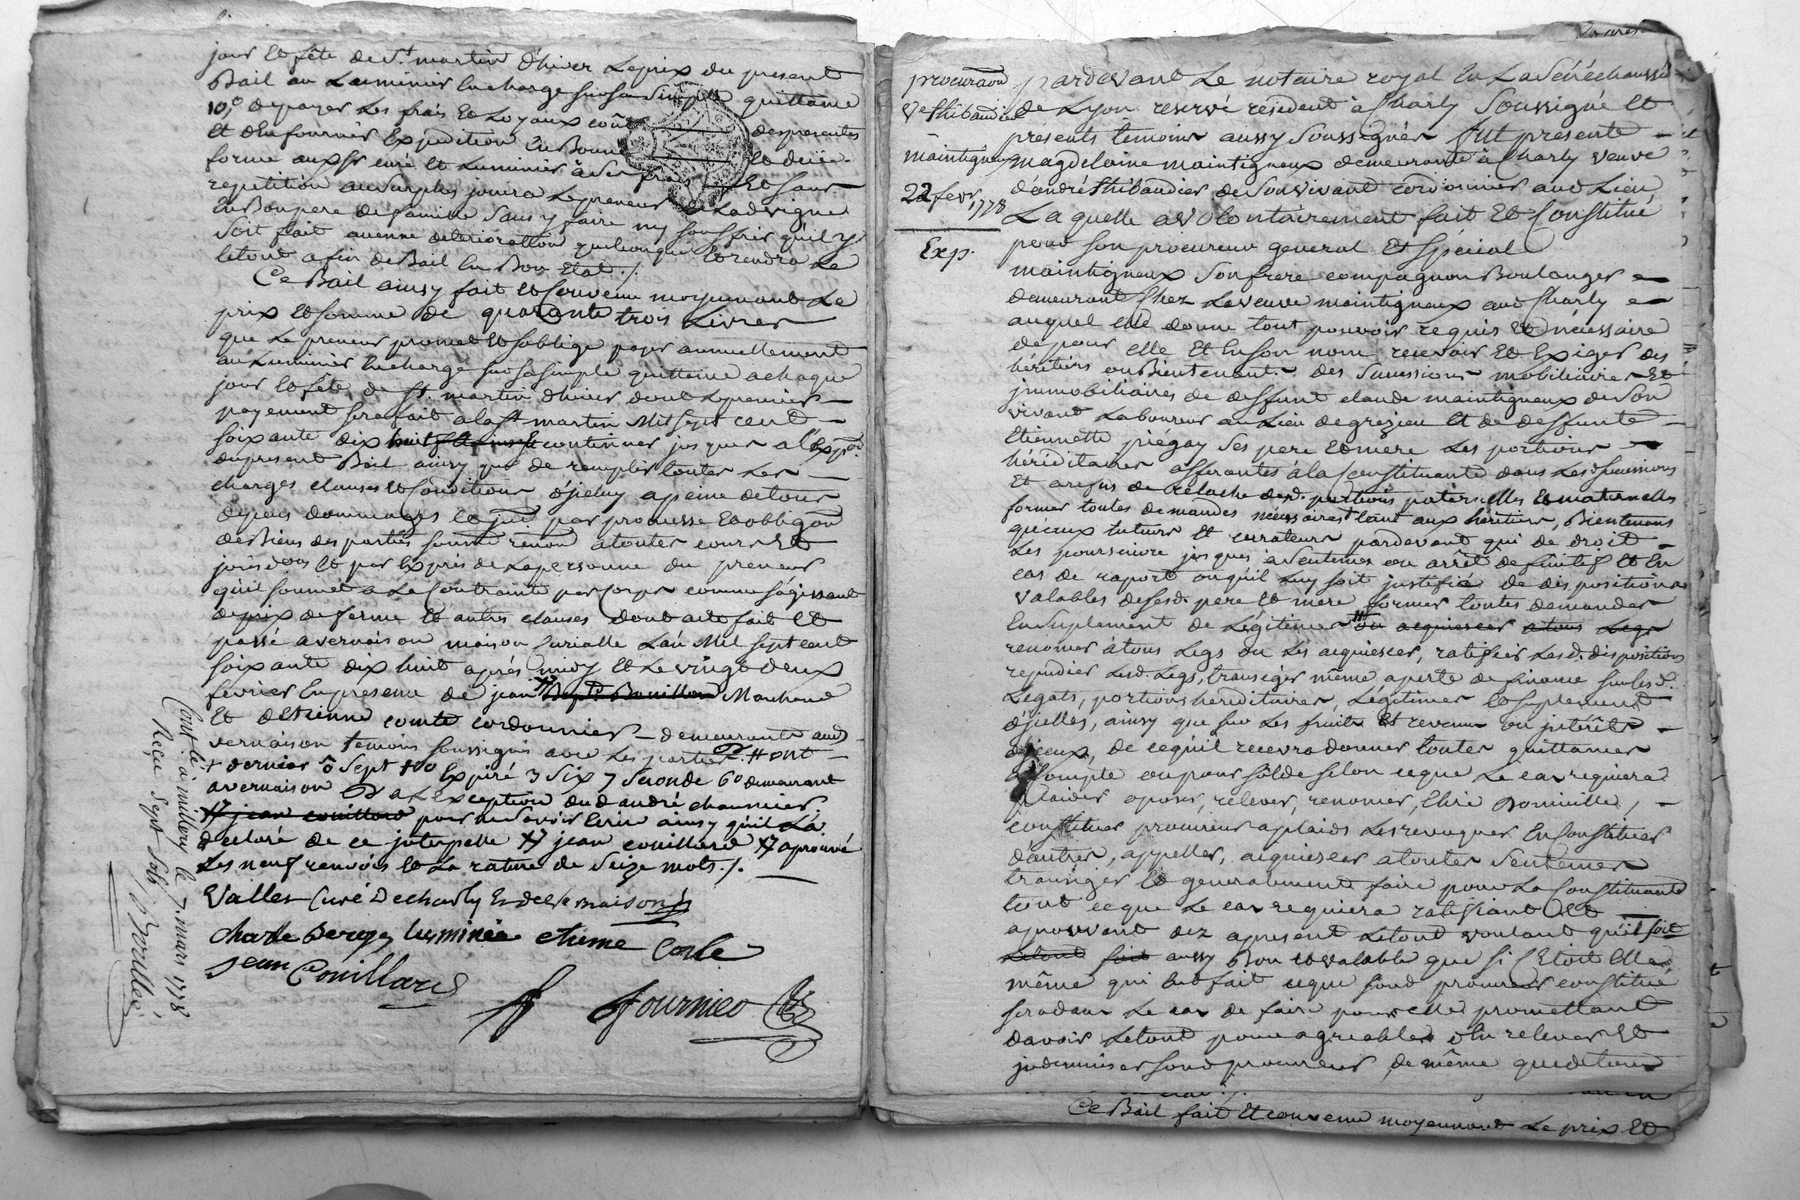 jour et fête de St. martin d'hiver le prix du present
Bail au Luminier En charge sur sa Simple quittance
10.° de payer Les frais Et Loyaux couts des presentes
et d'En fournir Expedition En Bonne
forme aux Sr curé Et Luminier à ses frais Et sans
repetition au Surplus jouira Le preneur de Ladvigne
En Bon pere de famille Sans y faire ny souffrir qu'il y
Soit fait aucune deterioration quelconque Et rendra Le
letout a fin de Bail En Bon Etat ./.
Ce Bail ainsy fait et Convenu moyennant Le
prix Et somme de quarante trois Livres
que Le preneur promet Et s'oblige payer annuellement
au Luminier En charge sur sa simple quittance a chaque
jour Et fête de St martin d'hiver dont Le premier
payement sera fait a la St martin Mil sept cent
soixante dix huit continuer jusques a l'Exp.on
du present Bail ainsy que de remplir toutes Les
charges clauses Et Conditions d'jceluy a peine de tous
depens dommages Et par promesse Et obligaon
de Biens des parties soum.on renon a toutes cours Et
jurisd.ons Et par Exprès de La personne du preneur
qu'il soumet a La Contrainte par Corps comme s'agissant
de prix de ferme Et autres clauses dont acte fait Et
passé a vernaison maison Curialle L'an Mil sept cent
soixante dix huit aprés midy Et Le vingt deux
fevrier En presence de jean Marchand
Et d'Etienne comte cordonnier demeurants aud.
vernaison temoins soussignés avec Les parties # ont
+ dernier 5 Sept +00 Expiré 3 Six 7 Seconde 6 demeurant
a vernaison a L'Exception dud andré chaumier
# jean couillard pour ne Savoir Ecrire ainsy qu'il L'a
declaré de ce jnterpellé # jean couillard # aprouvé
Les neuf renvois Et La rature de Seize mots ./.
Valles Curé De charly Et de vernaison
charle Berger luminié etiene Conte
jean Couillard
fournier
Cont.lé à millery le 7. mars 1778
Reçu Sept sols
procuraon
Ve thibaudier
maintigneux
22 fevr. 1778
Exp.
pardevant Le notaire royal En La Sénéchaussée
de Lyon reservé résident à Charly Soussigné Et
présents témoins aussy Soussignés fut présente
magdelaine maintigneux demeurante à Charly veuve
d'andré thibaudier de Son vivant cordonnier aud Lieu
Laquelle a volontairement fait Et Constitué
pour son procureur general Et Spécial
maintigneux Son frere compagnon Boulanger
demeurant Chez La veuve maintigneux aud Charly
auquel elle donne tout pouvoir requis Et nécessaire
de pour elle Et En son nom recevoir Et Exiger des
héritiers ou Bientenants des Successions mobiliaires Et
jmmobiliaires de deffunt claude maintigneux de Son
vivant Laboureur au Lieu de grezieu Et de deffunte
Etiennette piégay Ses pere Et mere Les portions
héréditaires afferantes à la Constituante dans Lesd. successions
Et a refus de relache desd. portions paternelles Et maternelles
former toutes demandes nécessaires tant aux héritiers, Bientenants
qu'à ceux tuteurs Et curateurs pardevant qui de droit
Les poursuivre jusques a Sentence ou arrêt definitif Et En
cas de raport ou qu'il luy soit justifié de dispositions
valables de sesd. pere Et mere former toutes demandes
En Suplement de Légitimes ou acquiescer a tous Legs
renoncer à tous Legs ou Les acquiescer, ratifier Lesd. dispositions
repudier Lesd. Legs, transiger même a perte de finance sur Lesd.
Legats, portions héréditaires, Légitimes Et suplement
d'jcelles, ainsy que sur Les fruits Et revenus ou jnterêts
d'jceux, de ce qu'il recevra donner toutes quittances
a Compte ou pour solde selon ce que Le cas requiera
plaider oposer, relever, renoncer, Elire Domicille,
constituer procureur a plaids Les revoquer En Constituer
d'autres, appeller, acquiescer a toutes Sentences
transiger Et generalement faire pour La Constituante
tout ce que Le cas requiera ratifiant Et
aprouvant dez apresent Letout voulant qu'il soit
Letout soit aussy Bon Et valable que si s'Etoit Elle
même qui Eut fait ce que sond procureur constitué
sera dans Le cas de faire pour elle promettant
d'avoir Letout pour agreable d'En relever Et
jndemniser sond procureur de même que de tous
Ce Bail fait Et convenu moyennant Le prix Et